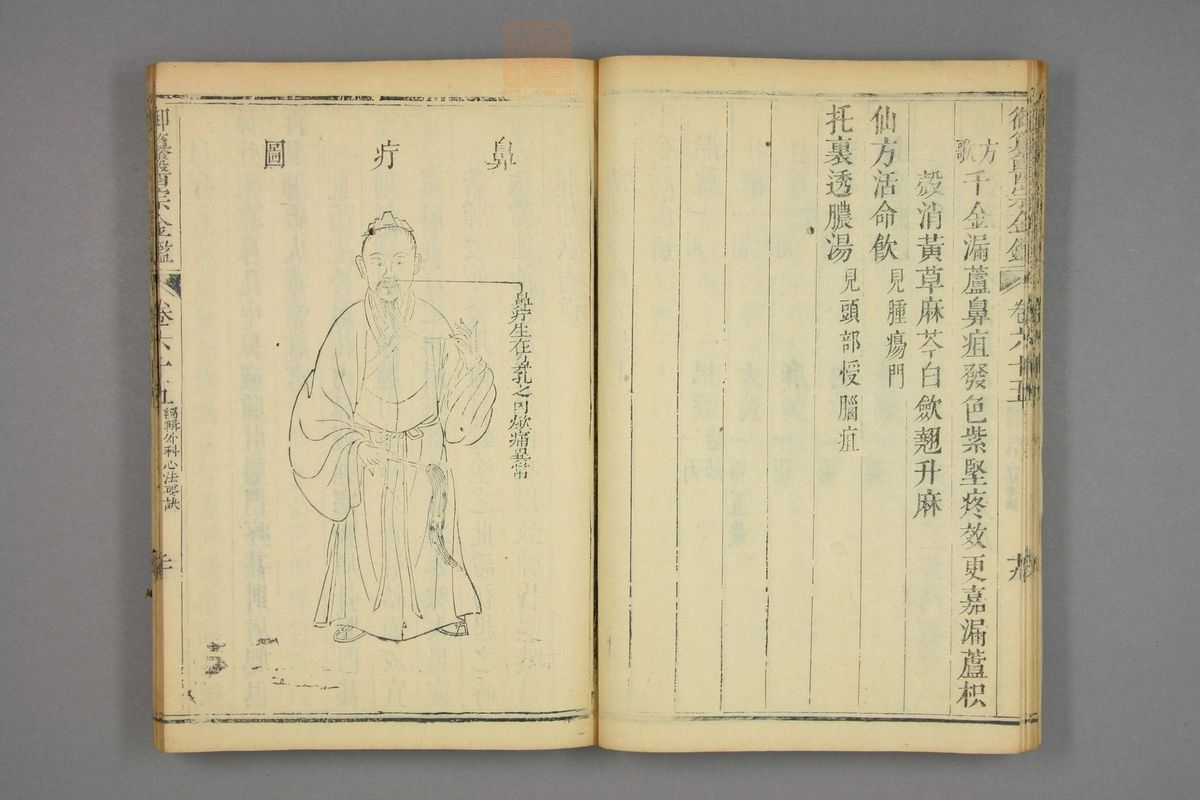 御纂醫宗金鑑 卷六十五
方歌 千金漏蘆鼻疽發色紫堅疼效更嘉漏蘆枳
殼消黃草麻芩白歛翹升麻
仙方活命飲 見腫瘍門
托裏透膿湯 見頭部侵腦疽
鼻疔圖
鼻疔生在鼻孔之內焮痛異常
御纂醫宗金鑑 卷六十五 編輯外科心法要訣